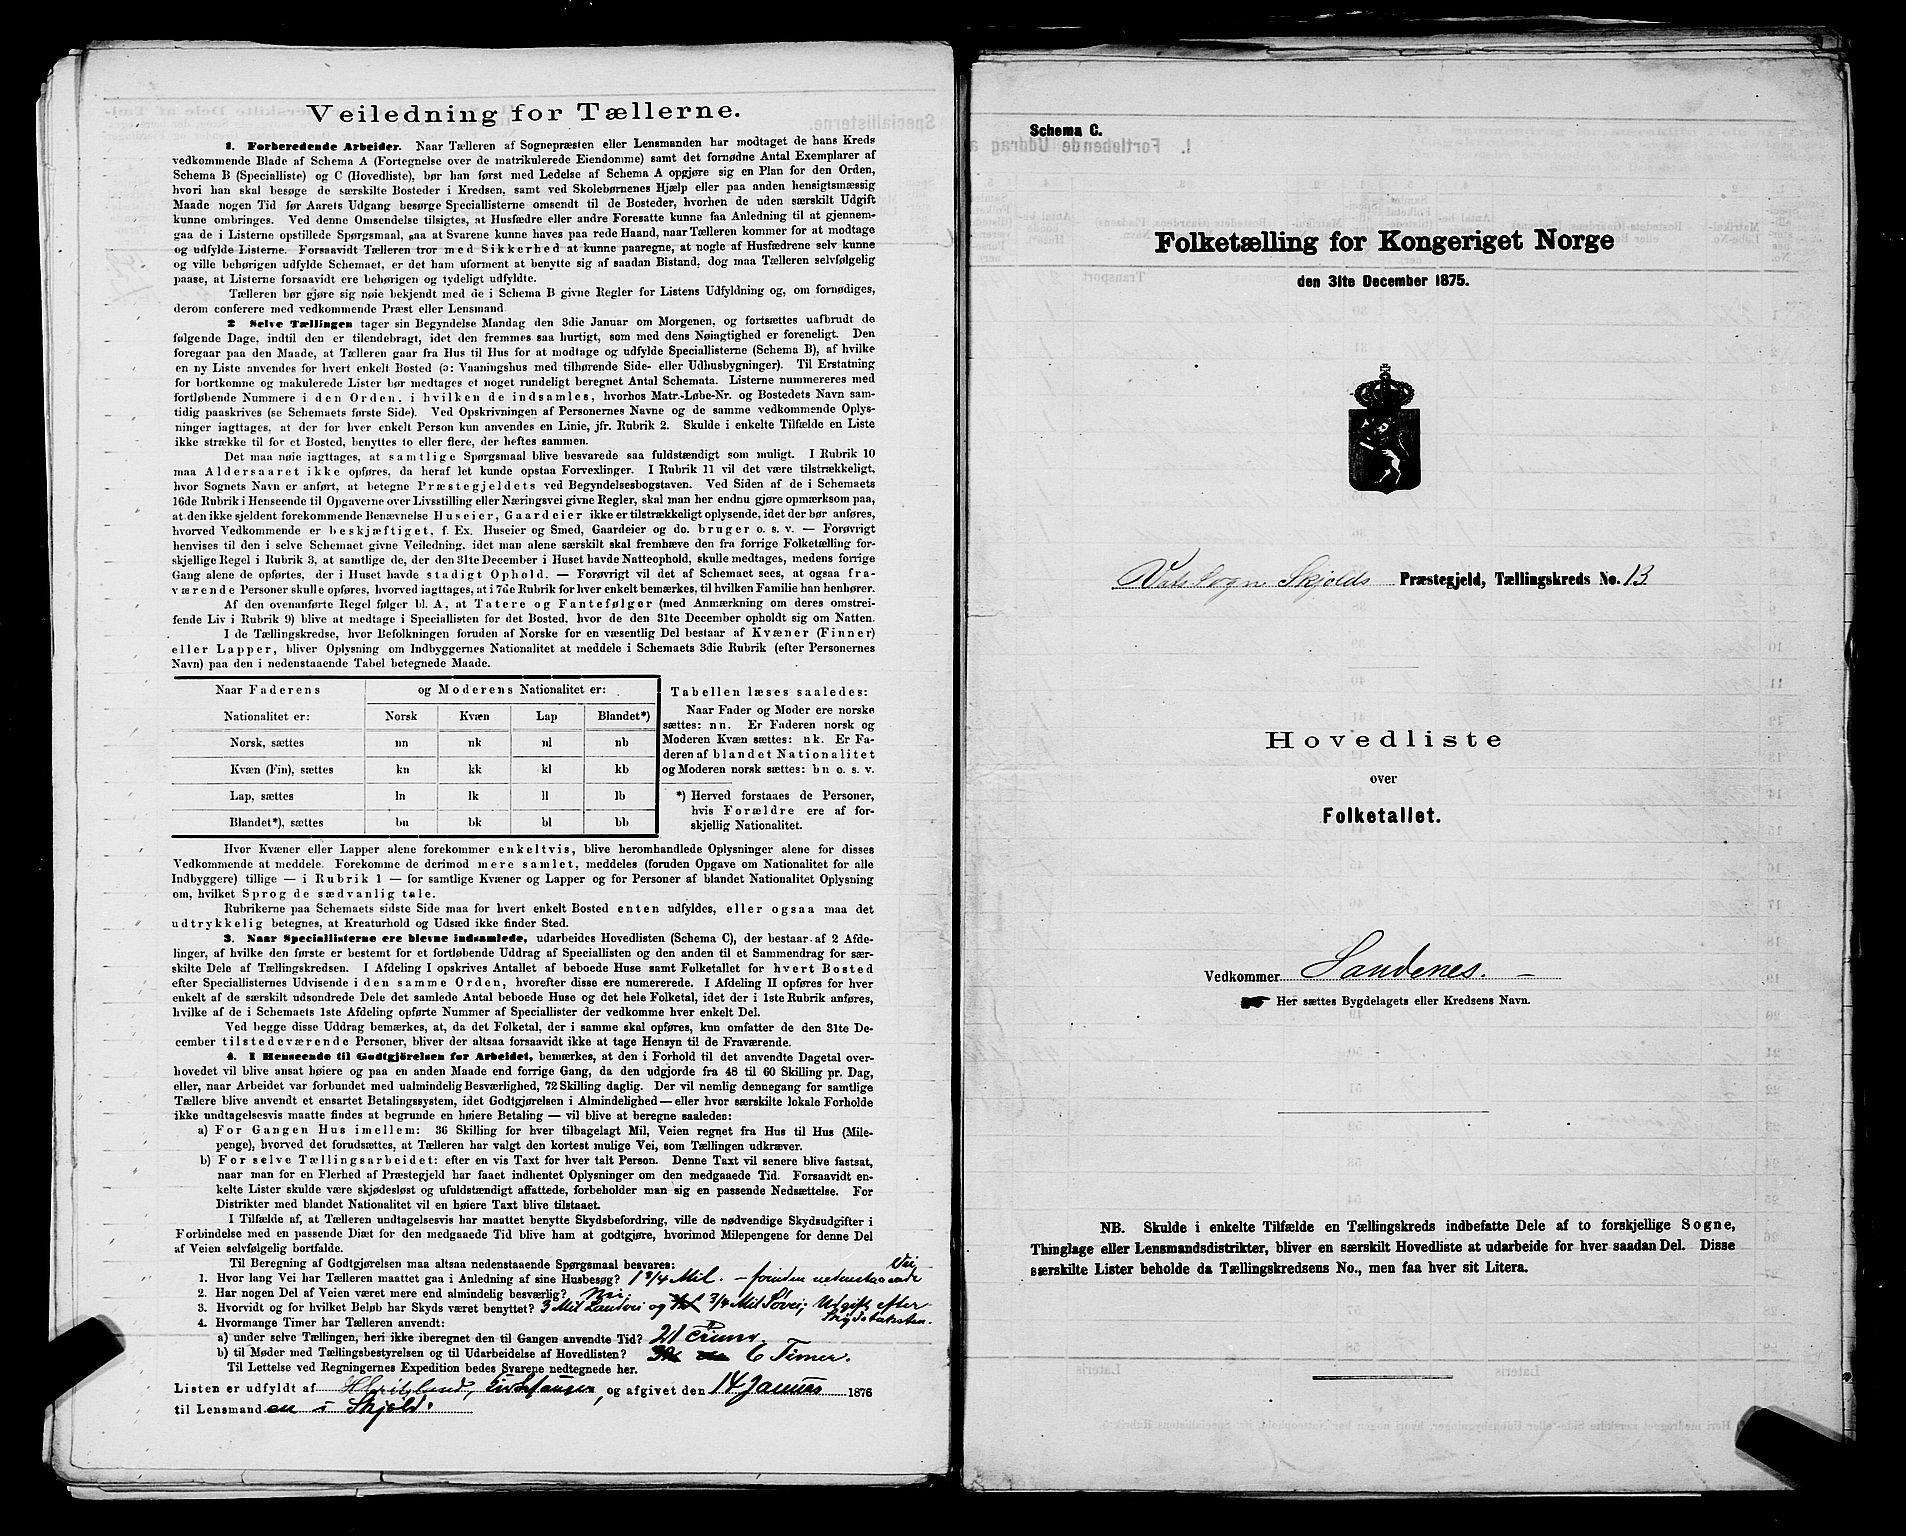 Veiledning for Tællerne.
1. Forberedende Arbeider. Naar Tælleren af Sognepræsten eller Lensmanden har modtaget de hans Kreds
vedkommende Blade af Schema A (Fortegnelse over de matrikulerede Eiendomme) samt det fornødne Antal Exemplarer af
Schema B (Specialliste) og C (Hovedliste), bør han først med Ledelse af Schema A opgjøre sig en Plan for den Orden,
hvori han skal besøge de særskilte Bosteder i Kredsen, samt ved Skolebørnenes Hjælp eller paa anden hensigtsmæssig
Maade nogen Tid før Aarets Udgang besørge Speciallisterne omsendt til de Bosteder, hvorhen de uden særskilt Udgift
kunne ombringes. Ved denne Omsendelse tilsigtes, at Husfædre eller andre Foresatte kunne faa Anledning til at gjennem-
gaa de i Listerne opstillede Spørgsmaal, saa at Svarene kunne haves paa rede Haand, naar Tælleren kommer for at modtage
og udfylde Listerne. Forsaavidt Tælleren tror med Sikkerhed at kunne paaregne, at nogle af Husfædrene selv kunne
og ville behørigen udfylde Schemaet, er det ham uforment at benytte sig af saadan Bistand, dog maa Tælleren selvfølgelig
paase, at Listerne forsaavidt ere behørigen og tydeligt udfyldte.
Tælleren bør gjøre sig nøie bekjendt med de i Schema B givne Regler for Listens Udfyldning og, om fornødiges,
derom conferere med vedkommende Præst eller Lensmand.
2 Selve Tællingen tager sin Begyndelse Mandag den 3die Januar om Morgenen, og fortsættes uafbrudt de
følgende Dage, indtil den er tilendebragt, idet den fremmes saa hurtigt, som med dens Nøiagtighed er foreneligt. Den
foregaar paa den Maade, at Tælleren gaar fra Hus til Hus for at modtage og udfylde Speciallisterne (Schema B), af hvilke
en ny Liste anvendes for hvert enkelt Bosted (ɔ: Vaaningshus med tilhørende Side- eller Udhusbygninger). Til Erstatning
for bortkomne og makulerede Lister bør medtages et noget rundeligt beregnet Antal Schemata. Listerne nummereres med
fortløbende Nummere i den Orden, i hvilken de indsamles, hvorhos Matr.-Løbe-Nr. og Bostedets Navn sam-
tidig paaskrives (se Schemaets første Side). Ved Opskrivningen af Personernes Navne og de samme vedkommende Oplys-
ninger iagttages, at der for hver enkelt Person kun anvendes en Linie, jfr. Rubrik 2. Skulde i enkelte Tilfælde en Liste
ikke strække til for et Bosted, benyttes to eller flere, der heftes sammen.
Det maa nøie iagttages, at samtlige Spørgsmaal blive besvarede saa fuldstændigt som muligt. I Rubrik 10
maa Aldersaaret ikke opføres, da heraf let kunde opstaa Forvexlinger. I Rubrik 11 vil det være tilstrækkeligt,
hvor Sognets Navn er anført, at betegne Præstegjeldets ved Begyndelsesbogstaven. Ved Siden af de i Schemaets
16de Rubrik i Henseende til Opgaverne over Livsstilling eller Næringsvei givne Regler, skal man her endnu gjøre opmærksom paa,
at den ikke sjeldent forekommende Benævnelse Huseier, Gaardeier ikke er tilstrækkeligt oplysende, idet der bør anføres,
hvorved Vedkommende er beskjæftiget, f. Ex. Huseier og Smed, Gaardeier og do. bruger o. s. v. — Forøvrigt
henvises til den i selve Schemaet givne Veiledning, idet man alene særskilt skal fremhæve den fra forrige Folketælling for-
skjellige Regel i Rubrik 3, at samtlige de, der den 31te December i Huset havde Natteophold, skulle medtages, medens forrige
Gang alene de opførtes, der i Huset havde stadigt Ophold. — Forøvrigt vil det af Schemaet sees, at ogsaa fra-
værende Personer skulle opføres, hvorved iagttages, at i 7de Rubrik for hver enkelt bemærkes, til hvilken Familie han henhører.
Af den ovenanførte Regel følger bl. A., at Tatere og Fantefølger (med Anmærkning om deres omstrei-
fende Liv i Rubrik 9) blive at medtage i Speciallisten for det Bosted, hvor de den 31te December opholdt sig om Natten.
I de Tællingskredse, hvor Befolkningen foruden af Norske for en væsentlig Del bestaar af Kvæner (Finner)
eller Lapper, bliver Oplysning om Indbyggernes Nationalitet at meddele i Schemaets 3die Rubrik (efter Personernes
Navn) paa den i nedenstaaende Tabel betegnede Maade.
Naar Faderens og Moderens Nationalitet er:
Nationalitet er: Norsk Kvæn Lap Blandet*)
Norsk, sættes nn nk nl nb
Kvæn (Fin), sættes kn kk kl kb
Lap, sættes ln lk ll lb
Blandet*), sættes bn bk bl bb
Tabellen læses saaledes:
Naar Fader og Moder ere norske
sættes: nn. Er Faderen norsk og
Moderen Kvæn sættes: nk. Er Fa-
deren af blandet Nationalitet
og Moderen norsk sættes: bn o. s. v.
*) Herved forstaaes de Personer,
hvis Forældre ere af for-
skjellig Nationalitet.
Hvor Kvæner eller Lapper alene forekommer enkeltvis, blive heromhandlede Oplysninger alene for disses
Vedkommende at meddele. Forekomme de derimod mere samlet, meddeles (foruden Opgave om Nationalitet for alle
Indbyggere) tillige — i Rubrik 1 — for samtlige Kvæner og Lapper og for Personer af blandet Nationalitet Oplysning
om, hvilket Sprog de sædvanlig tale.
Rubrikerne paa Schemaets sidste Side maa for hvert enkelt Bosted enten udfyldes, eller ogsaa maa det
udtrykkelig betegnes, at Kreaturhold og Udsæd ikke finder Sted.
3. Naar Speciallisterne ere blevne indsamlede, udarbeides Hovedlisten (Schema C), der bestaar af 2 Afde-
linger, af hvilke den første er bestemt for et fortløbende Uddrag af Speciallisten og den anden til et Sammendrag for sær-
skilte Dele af Tællingskredsen. I Afdeling I opskrives Antallet af beboede Huse samt Folketallet for hvert Bosted
efter Speciallisternes Udvisende i den samme Orden, hvorefter disse ere numererede. I Afdeling II opføres for hver
enkelt af de særskilt udsondrede Dele det samlede Antal beboede Huse og det hele Folketal, idet der i 1ste Rubrik anføres,
hvilke af de i Schemaets 1ste Afdeling opførte Nummer af Speciallister der vedkomme hver enkelt Del.
Ved begge disse Uddrag bemærkes, at, da det Folketal, der i samme skal opføres, kun omfatter de den 31te De-
cember tilstedeværende Personer, bliver der altsaa forsaavidt ikke at tage Hensyn til de Fraværende.
4. I Henseende til Godtgjörelsen for Arbeidet, bemærkes, at den i Forhold til det anvendte Dagetal over-
hovedet vil blive ansat høiere og paa en anden Maade end forrige Gang, da den udgjorde fra 48 til 60 Skilling pr. Dag,
eller, naar Arbeidet var forbundet med ualmindelig Besværlighed, 72 Skilling daglig. Der vil nemlig dennegang for samtlige
Tællere blive anvendt et ensartet Betalingssystem, idet Godtgjørelsen i Almindelighed — eller hvor særskilte lokale Forholde
ikke undtagelsesvis maatte findes at begrunde en høiere Betaling — vil blive at beregne saaledes:
a) For Gangen Hus imellem: 36 Skilling for hver tilbagelagt Mil, Veien regnet fra Hus til Hus (Mile-
penge), hvorved det forudsættes, at Tælleren har valgt den kortest mulige Vei, som Tællingen udkræver.
b) For selve Tællingsarbeidet: efter en vis Taxt for hver talt Person. Denne Taxt vil senere blive fastsat,
naar man for en Flerhed af Præstegjeld har faaet indhentet Oplysninger om den medgaaede Tid. Forsaavidt en-
kelte Lister skulde være skjødesløst og ufuldstændigt affattede, forbeholder man sig en passende Nedsættelse. For
Distrikter med blandet Nationalitet vil en høiere Taxt blive tilstaaet.
I Tilfælde af, at Tælleren undtagelsesvis har maattet benytte Skydsbefordring, ville de nødvendige Skydsudgifter i
Forbindelse med en passende Diæt for den medgaaede Tid blive ham at godtgjøre, hvorimod Milepengene for denne Del
af Veien selvfølgelig bortfalde.
Til Beregning af Godtgjørelsen maa altsaa nedenstaaende Spørgsmaal besvares:
1. Hvor lang Vei har Tælleren maattet gaa i Anledning af sine Husbesøg? 1 3/4 Mil. – foruden nedenstaaende Vei
2. Har nogen Del af Veien været mere end almindelig besværlig? Nei.
3. Hvorvidt og for hvilket Beløb har Skyds været benyttet? 3 Mil Landvei og 3/4 Mil Søvei; Udgift efter Skydstaksten.
4. Hvormange Timer har Tælleren anvendt:
a) under selve Tællingen, heri ikke iberegnet den til Gangen anvendte Tid? 21 Timer.
b) til Møder med Tællingsbestyrelsen og til Udarbeidelse af Hovedlisten? 6 Timer.
Til Lettelse ved Regningernes Expedition bedes Svarene nedtegnede her.
Listen er udfyldt af og afgivet den 14 Januar 1876
til Lensmanden i Skjold.
Schema C.
Folketælling for Kongeriget Norge
den 31te December 1875.
Vats Sogn Skjolds Præstegjeld, Tællingskreds No. 13
Hovedliste
over
Folketallet.
Vedkommer Sandenes. –
Her sættes Bygdelagets eller Kredsens Navn.
NB. Skulde i enkelte Tilfælde en Tællingskreds indbefatte Dele af to forskjellige Sogne,
Thinglage eller Lensmandsdistrikter, bliver en særskilt Hovedliste at udarbeide for hver saadan Del. Disse
særskilte Lister beholde da Tællingskredsens No., men faa hver sit Litera.